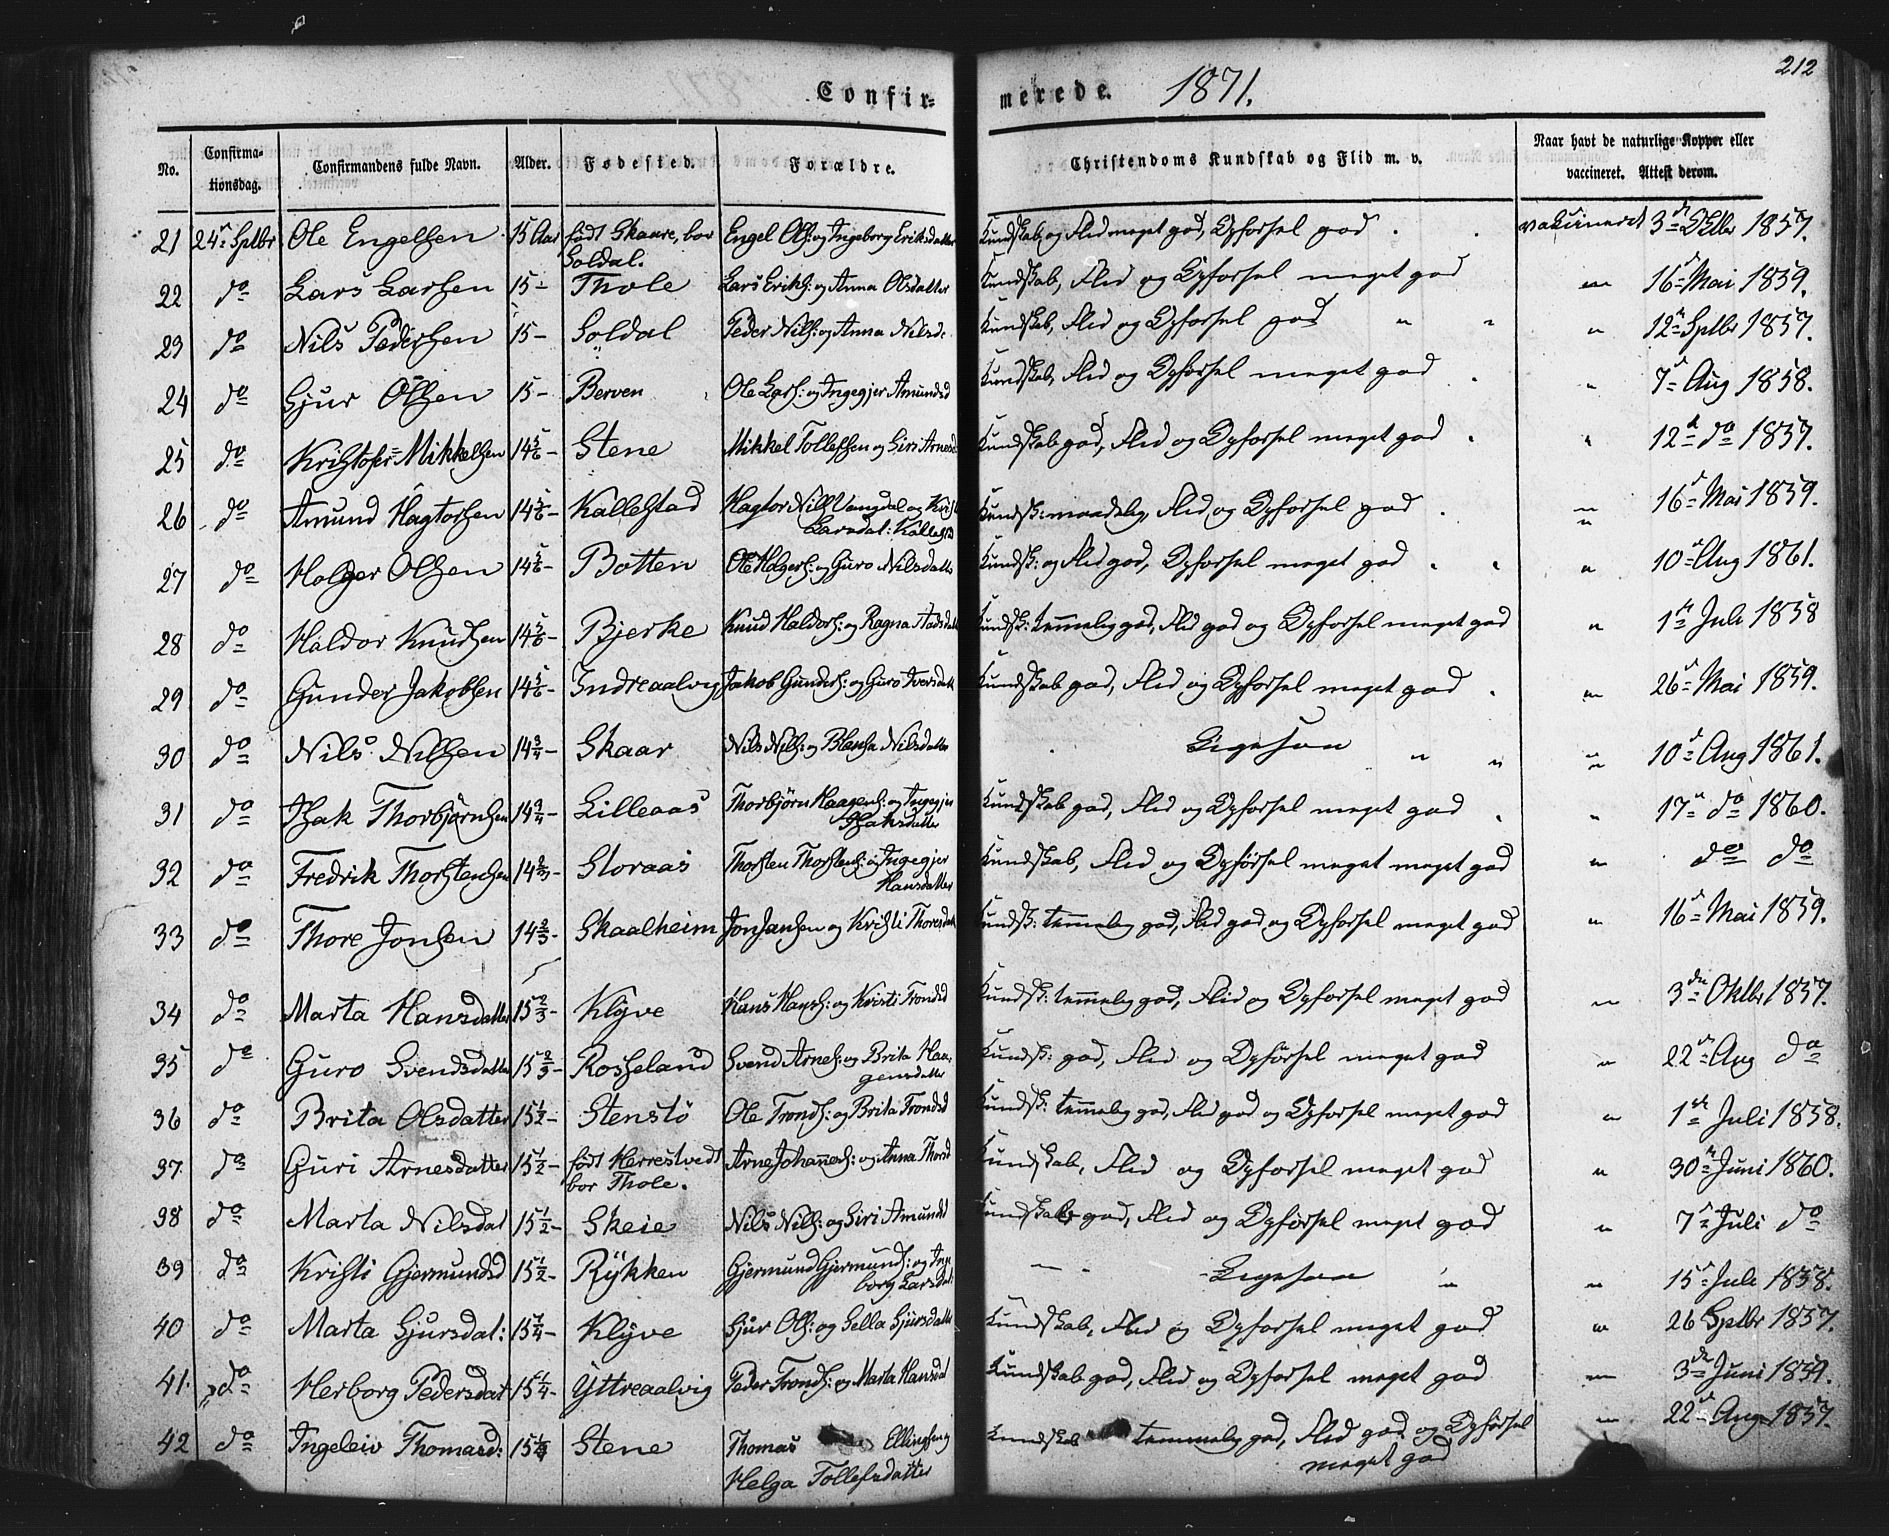 212
Confirmerede. 1871.
No. Confirmationsdag. Confirmandens fulde Navn. Alder. Fødested. Forældre. Christendoms Kundskab og Flid m. v. Naar havt de naturlige Kopper eller vaccineret. Attest derom.
21 24de Sptbr Ole Engelsen 15 Aar født Skaare, bor Engel Ols: og Ingeborg Eriksdatter Kundskab og Flid meget god, Opførsel god vakcineret 3de 1857.
Soldal.
22 do Lars Larsen 15 - Thole Lars Eriks: og Anna Olsdatter Kundskab, Flid og Opførsel meget god " 16de Mai 1859.
23 do Nils Pedersen 15 - Soldal Peder Nils: og Anna Nilsd: Kundskab, Flid og Opførsel god " " " 12te Sptbr 1857.
24 do Sjur Olsen 15 - Berven Ole Lars: og Ingegjer Amundsd Kundskab, Flid og Opførsel meget god " 7de Aug 1858.
25 do Kristofer Mikkelsen 14 5/6 - Stene Mikkel Tollefsen og Siri Arnesd Kundskab god, Flid og Opførsel meget god " 12te do 1857.
26 do Amund Hagtorsen 14 5/6 - Kallestad Hagtor Nils: Vangdal og Larsdat: Kallestad Kundsk: maadelig, Flid og Opførsel god " 16de Mai 1859.
27 do Holger Olsen 14 5/6 - Botten Ole Holgers: og Guro Nilsdatter Kundsk: og Flid god, Opførsel meget god " 10de Aug 1861.
28 do Haldor Knudsen 14 5/6 - Bjerke Knud Haldors: og Ragna Kundsk: temmelig god, Flid god og Opførsel meget god " 1ste Juli 1858
29 do Gunder Jakobsen 14 5/6 - Indreaalvig Jakob Gunders: og Guro Iversdatt Kundskab god, Flid og Opførsel meget god " 26de Mai 1859.
30 do Nils Nilsen 14 3/4 - Skaar Nils Nils: og Nilsdatter Ligesaa " " " 10de Aug 1861.
31 do Isak Thorbjørnsen 14 3/4 - Lilleaas Thorbjørn Haagens: og Ingegjer Isaksdatter Kundskab god, Flid og Opførsel meget god " 17de do 1860.
32 do Fredrik Thorstensen 14 2/3 - Storaas Thorsten Thorstens: og Ingegjer Hansdatter Kundskab, Flid og Opførsel meget meget god " do do
33 do Thore Jonsen 14 2/3 - Skaalheim Jon Jansen og Kristi Thoresdatt Kundsk: temmelig god, Flid god og Opførsel meget god " 16de Mai 1859.
34 do Marta Hansdatter 15 2/3 - Klyve Hans Hans: og Kristi Trondsd Kundsk: temmelig god, Flid og Opførsel meget god " 3die Oktbr 1857.
35 do Guro Svendsdatter 15 2/3 - Rosseland Svend Arnes: og Brita Haagensdatter Kundsk: god, Flid og Opførsel meget god " 22de Aug do
36 do Brita Olsdatter 15 1/2 - Stenstø Ole Tronds: og Brita Trondsd Kundsk: temmelig god, Flid god og Opførsel meget god " 1ste Juli 1858.
37. do Guri Arnesdatter 15 1/2 - født Herrestvedt Arne Johannes: og Anna Thorsd Kundskab, Flid og Opførsel meget god " 30te Juni 1860.
bor Thole.
38 do Marta Nilsdat 15 1/2 - Skeie Nils Nils: og Siri Amundsd Kundskab god, Flid og Opførsel meget god " 7de Juli do
39 do Kristi Gjermundsd 15 1/2 - Rykken Gjermund Gjermunds: og Ingeborg Larsdat Ligesaa " " 15de Juli 1858.
40 do Marta Sjursdat: 15 1/4 - Klyve Sjur Ols: og Sella Sjursdatter Kundskab, Flid og Opførsel meget god " 26 Sptbr 1857.
41. do Herborg Pedersdat 15 1/4 - Yttreaalvig Peder Tronds: og Marta Hansdat Kundskab god, Flid og Opførsel meget god " 3die Juni 1859.
42 do Ingeleiv Thomasd: 15 1/4 Stene Thomas Ellingsen og Kundskab temmelig god, Flid god og Opførsel " 22de Aug 1857.
Helga Tollefsdatter meget god